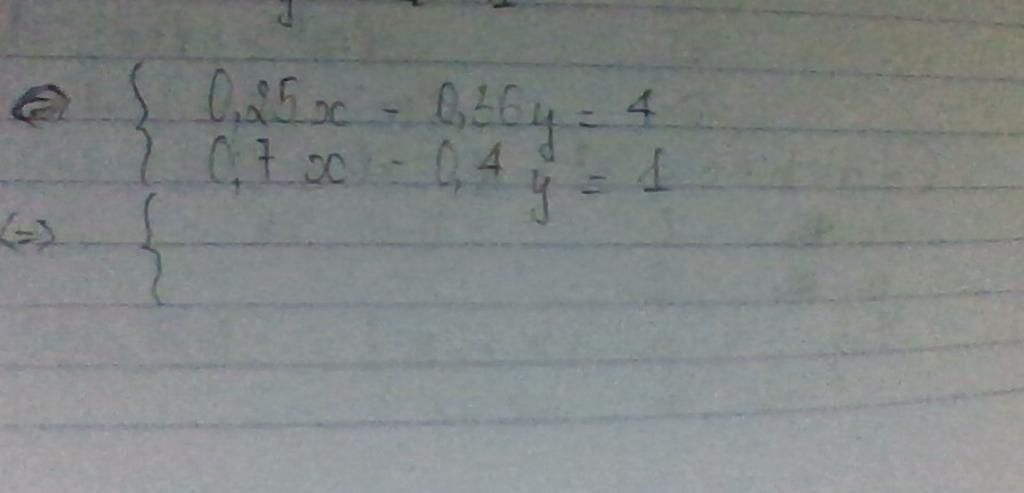 ⇔ { 0,25x - 0,16y = 4
0,7x - 0,4y = 1
⇔ {